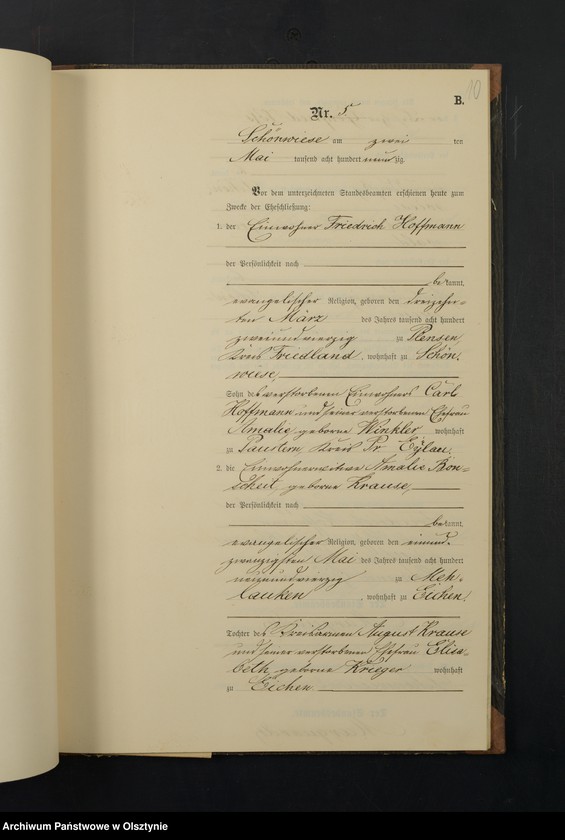 10
B.
Nr. 5
Schönwiese am zwei ten
Mai tausend acht hundert neunzig.
Vor dem unterzeichneten Standesbeamten erschienen heute zum
Zwecke der Eheschließung:
1. der Einwohner Friedrich Hoffmann
der Persönlichkeit nach
bekannt,
evangelischer Religion, geboren den dreizehn-
ten März des Jahres tausend acht hundert
zweiundvierzig zu Rensen,
Kreis Friedland, wohnhaft zu Schön-
wiese,
Sohn des verstorbenen Einwohners Carl
Hoffmann und seiner verstorbenen Ehefrau
Amalie, geborne Winkler wohnhaft
zu Paustern, Kreis Pr. Eylau.
2. die Einwohnerwitwe Amalie Bon-
scheit, geborne Krause,
der Persönlichkeit nach
bekannt,
evangelischer Religion, geboren den einund-
zwanzigsten Mai des Jahres tausend acht hundert
neunundvierzig zu Meh-
lauken, wohnhaft zu Eichen,
Tochter des August Krause
und seiner verstorbenen Ehefrau Elisa-
beth, geborne Krieger wohnhaft
zu Eichen.
Archiwum Państwowe w Olsztynie